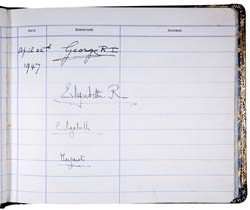 DATE SIGNATURE ADDRESS
April 22nd George R.I.
1947
Elizabeth R
Elizabeth
Margaret